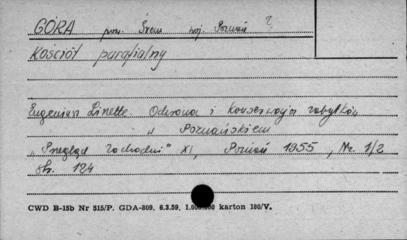 GÓRA pow. Śrem woj. Poznań ?
Kościół parafialny
Eugeniusz Linette. Ochrona i konserwacja zabytków
w Poznańskiem
„Przegląd Zachodni" XI, Poznań 1955, Nr. 1/2
str. 124
CWD B-15b Nr 515/P. GDA-809. 6.3.59. karton 180/V.